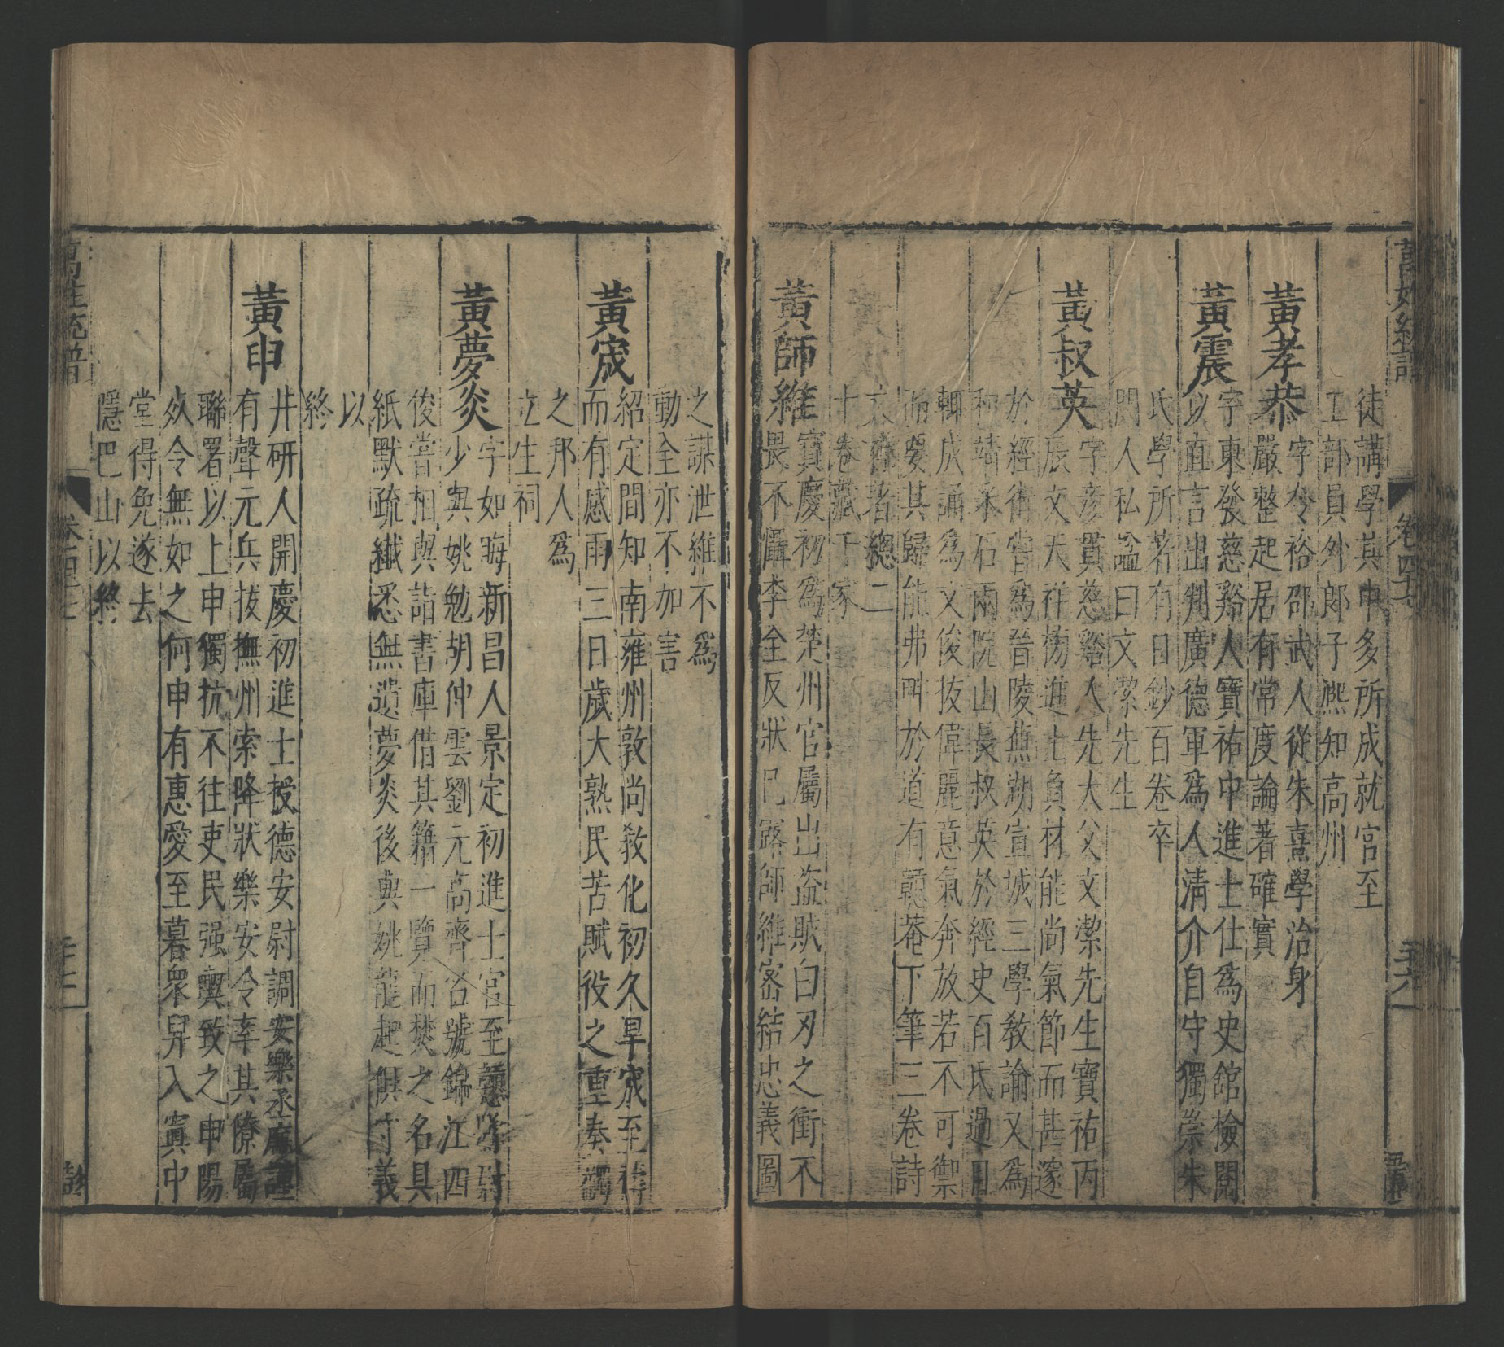 萬姓統譜
卷四七
徒講學其中多所成就官至
工部員外郎子熙知高州
黃孝恭
字令裕邵武人從朱熹學治身
嚴整起居有常度論著確實
黃震
字東發慈谿人寶祐中進士仕為史館檢閱
以直言出判廣德軍為人清介自守獨崇朱
氏學所著有日鈔百卷卒
門人私謚曰文潔先生
黃叔英
字彥實慈谿人先大父文潔先生寶祐丙
辰文天祥榜進士負材能尚氣節而甚邃
於經術嘗為晉陵蕪湖宣城三學教諭又為
和靖采石兩院山長叔英於經史百氏過目
輒成誦為文俊拔偉麗意氣奔放若不可禦
而要其歸能弗畔於道有戇菴下筆三卷詩
文齋著總二
十卷藏于家
黃師維
寶慶初為楚州官屬出盜賊白刃之衝不
畏不懾李全反狀已露師維密結忠義圖
之謀泄維不為
動全亦不加害
黃宬
紹定間知南雍州敦尚教化初久旱宬至禱
而有感雨三日歲大熟民苦賦役之重奏蠲
之邦人為
立生祠
黃夢炎
字如晦新昌人景定初進士官至
少與姚勉胡仲雲劉元高齊名號錦江四
俊嘗相與詣書庫借其籍一覽而焚之名具
紙默疏纖悉無遺夢炎後與姚龍起俱寸義
以
終
黃申
井研人開慶初進士授德安尉調安樂丞
有聲元兵拔撫州索降狀樂安令率其僚屬
聯署以上申獨抗不往吏民强輿致之申陽
㸃令無如之何申有惠愛至暮衆舁入寘中
堂得免遂去
隱巴山以終
萬姓統譜